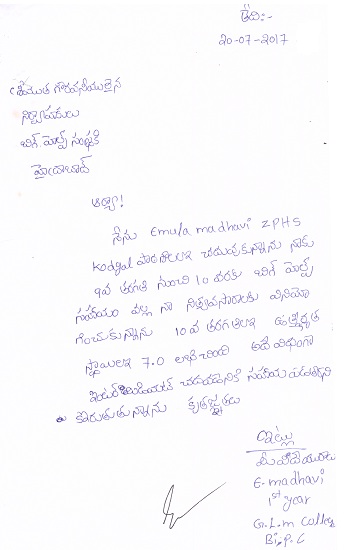 తేది:-
20-07-2017
శ్రీయుత గౌరవనీయులైన
నిర్వాహకులు
బిగ్ హెల్ప్ సంస్థకి
హైదరాబాద్
ఆర్యా!
నేను Emula madhavi ZPHS
Kodgal పాఠశాలలో చదువుకున్నాను నాకు
తరగతి నుంచి 10 వరకు బిగ్ హెల్ప్
సహాయం వల్ల నా నిత్యవసరాలకు వినియో
గించుకున్నాను 10వ తరగతిలో ఉత్తీర్ణత
7.0 లభించింది అదే విధంగా
చదవడానికి సహాయ
కోరుతున్నాను కృతజ్ఞతలు
ఇట్లు
మీ విధేయురాలు
E. madhavi
1st year
G.L.m College
Bi.P.C